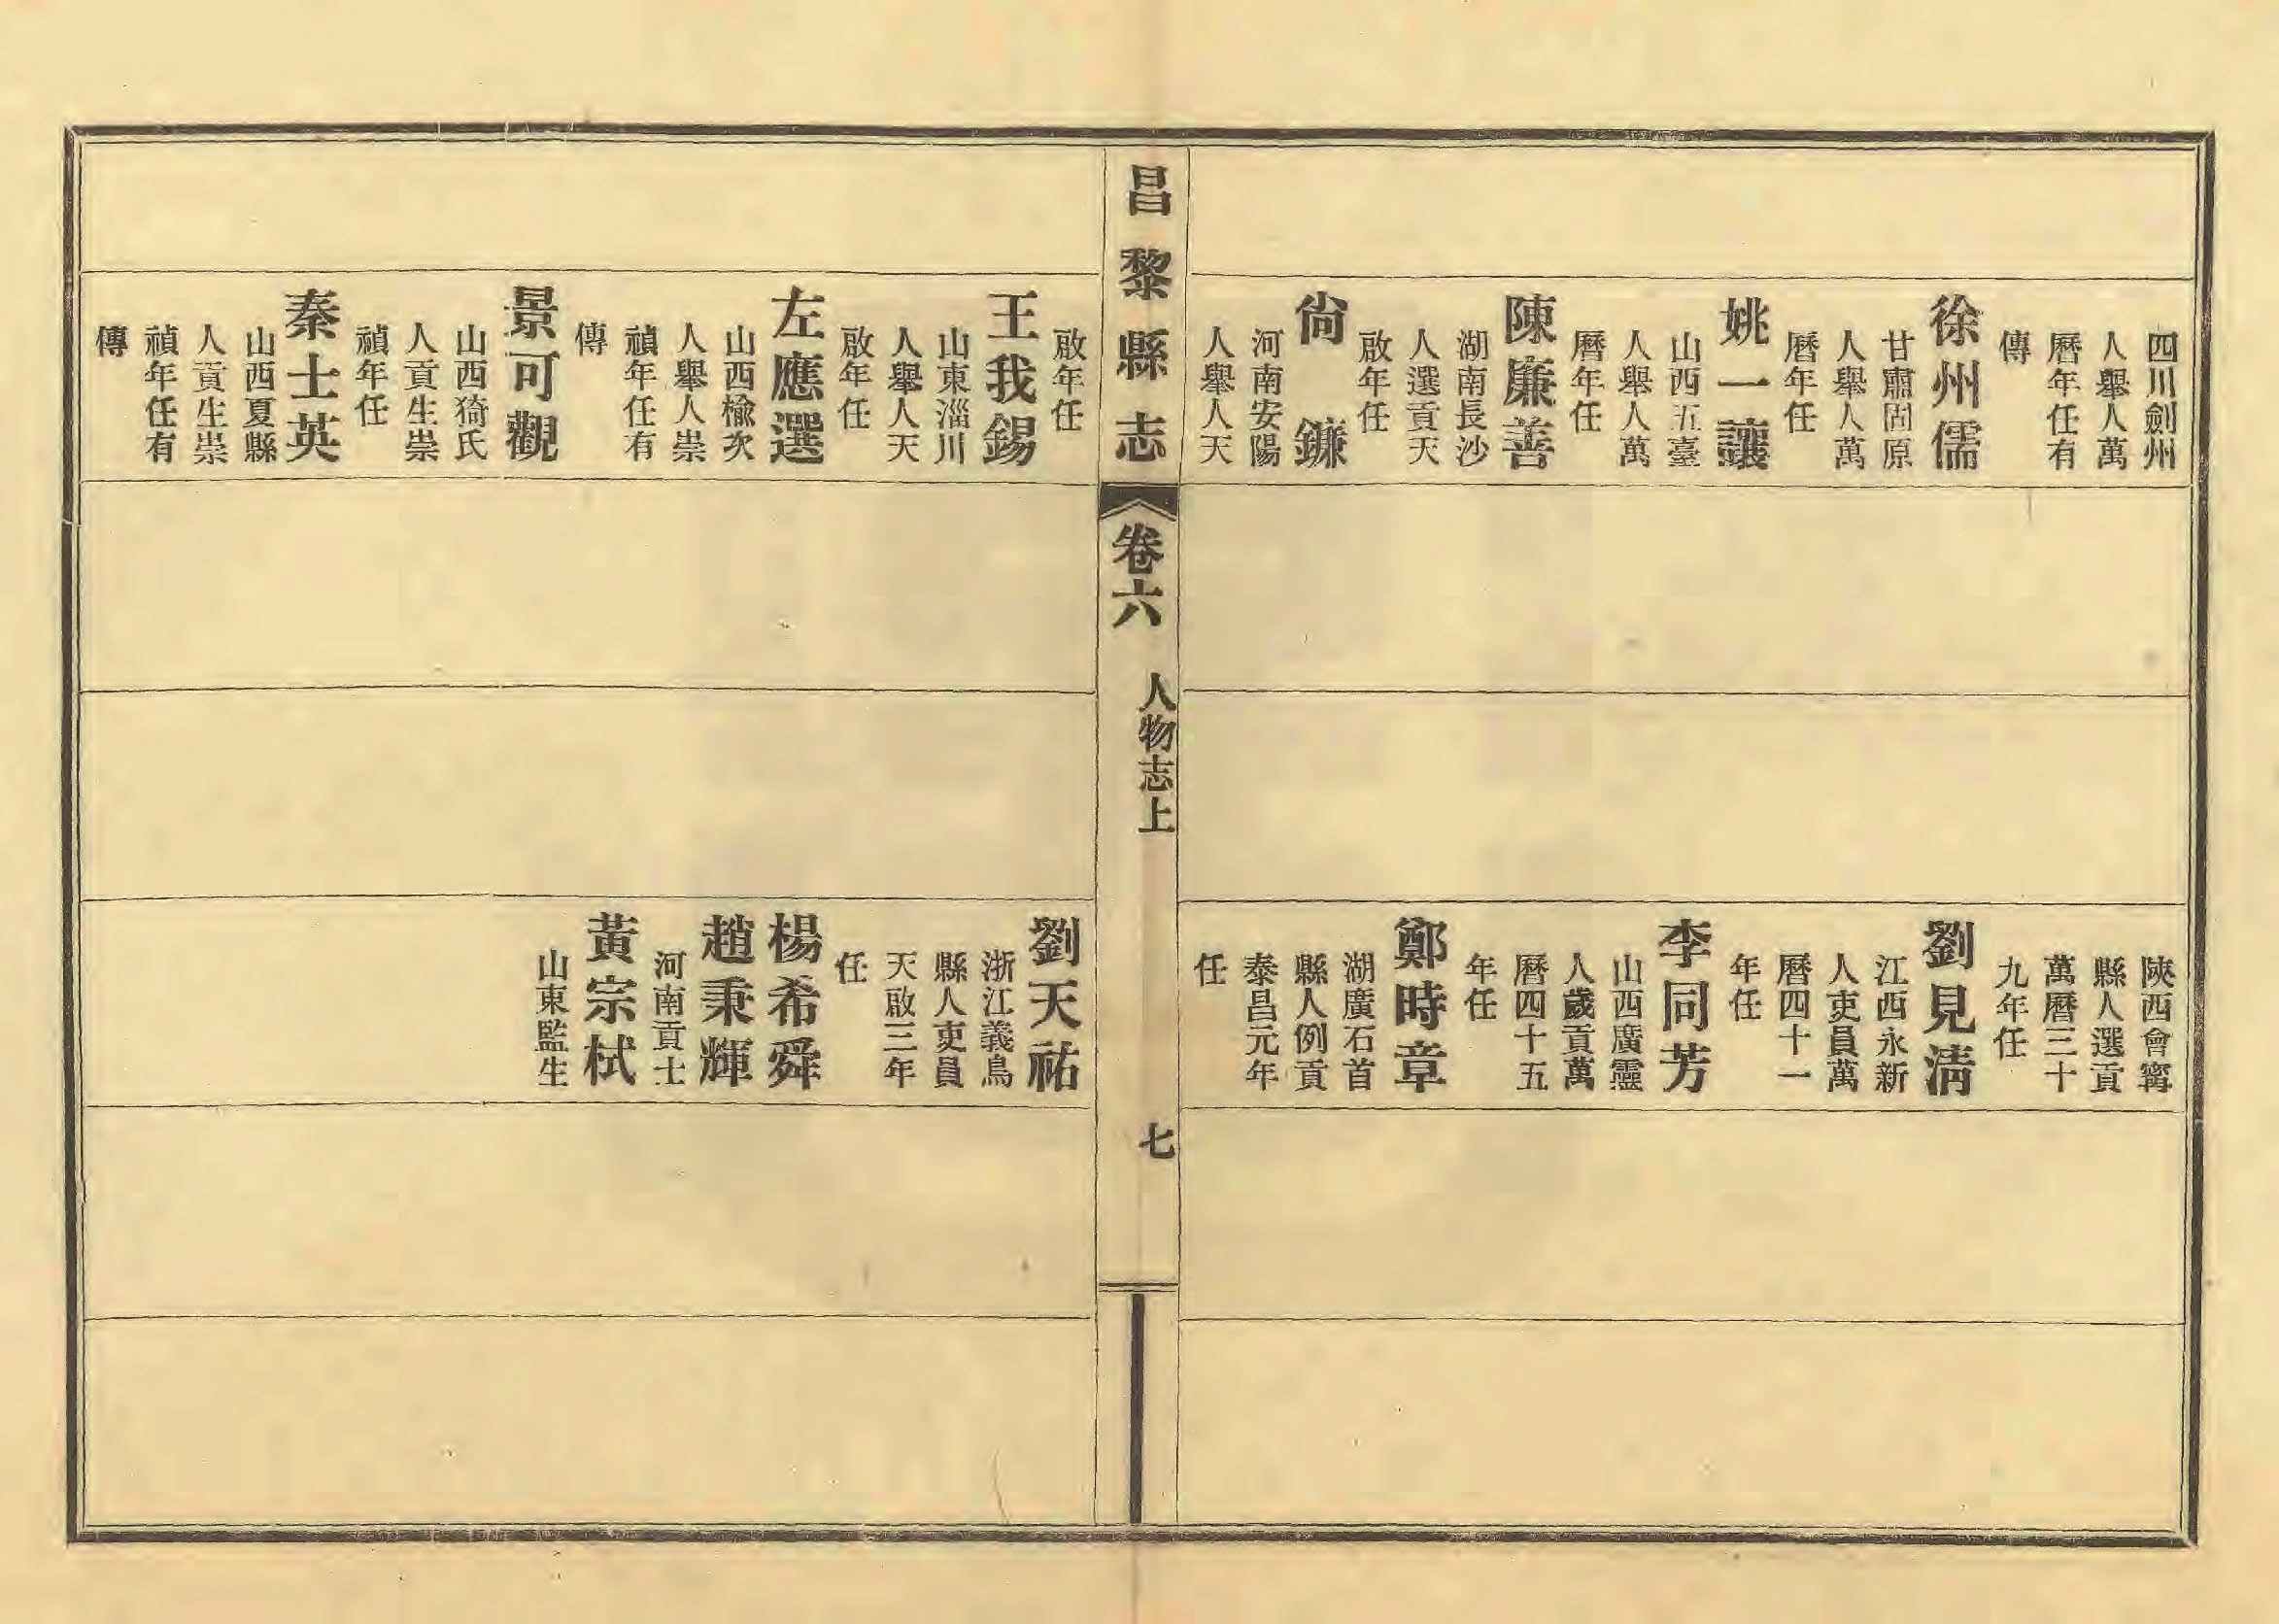 四川劍州
人舉人萬
曆年任有
傳
徐州儒
甘肅固原
人舉人萬
曆年任
姚一讓
山西五臺
人舉人萬
曆年任
陳廉善
湖南長沙
人選貢天
啟年任
尙鐮
河南安陽
人舉人天
陝西會寗
縣人選貢
萬曆三十
九年任
劉見淸
江西永新
人吏員萬
曆四十一
年任
李同芳
山西廣靈
人歲貢萬
曆四十五
年任
鄭時章
湖廣石首
縣人例貢
泰昌元年
任
昌黎縣志
卷六
人物志上
七
啟年任
王我錫
山東淄川
人舉人天
啟年任
左應選
山西楡次
人舉人崇
禎年任有
傳
景可觀
山西猗氏
人貢生崇
禎年任
秦士英
山西夏縣
人貢生崇
禎年任有
傳
劉天祐
浙江義烏
縣人吏員
天啟三年
任
楊希舜
趙秉輝
河南貢士
黃宗栻
山東監生